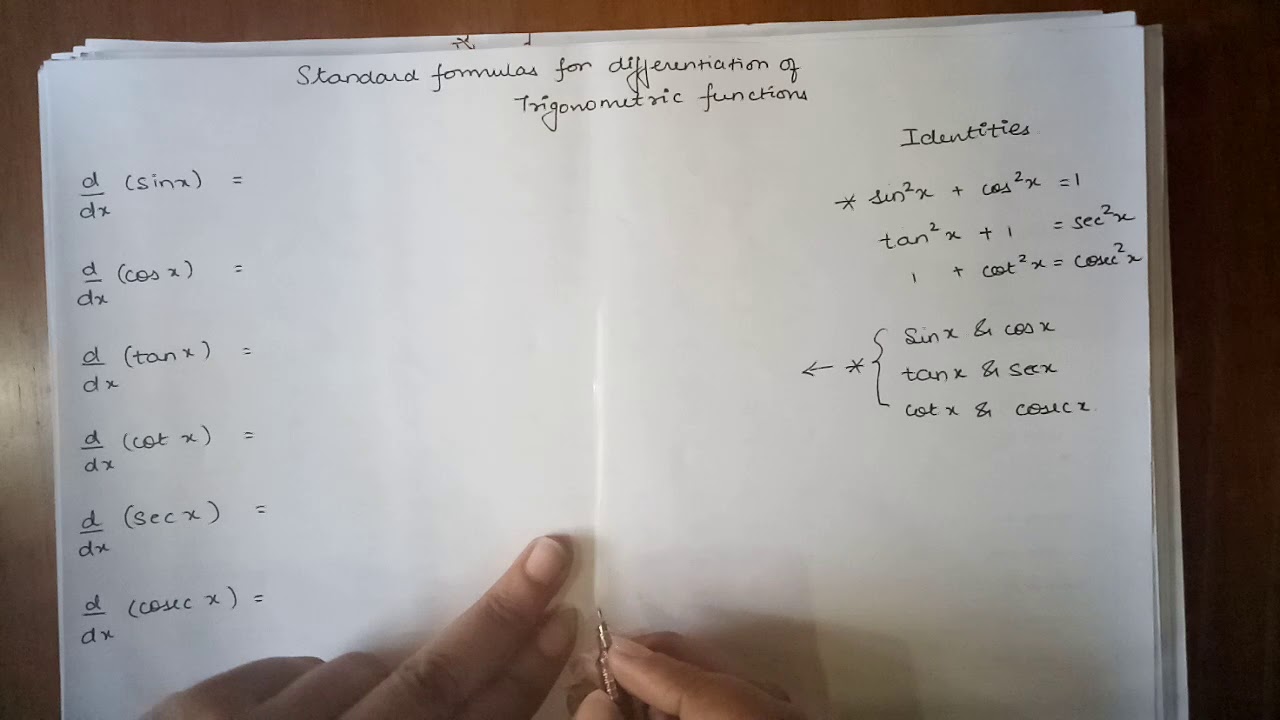 Standard formulas for differentiation of
Trigonometric functions
Identities
d/dx (sinx) =
d/dx (cos x) =
d/dx (tan x) =
d/dx (cot x) =
d/dx (sec x) =
d/dx (cosec x) =
* sin²x + cos²x = 1
tan²x + 1 = sec²x
1 + cot²x = cosec²x
← * { sin x & cos x
tan x & sec x
cot x & cosec x